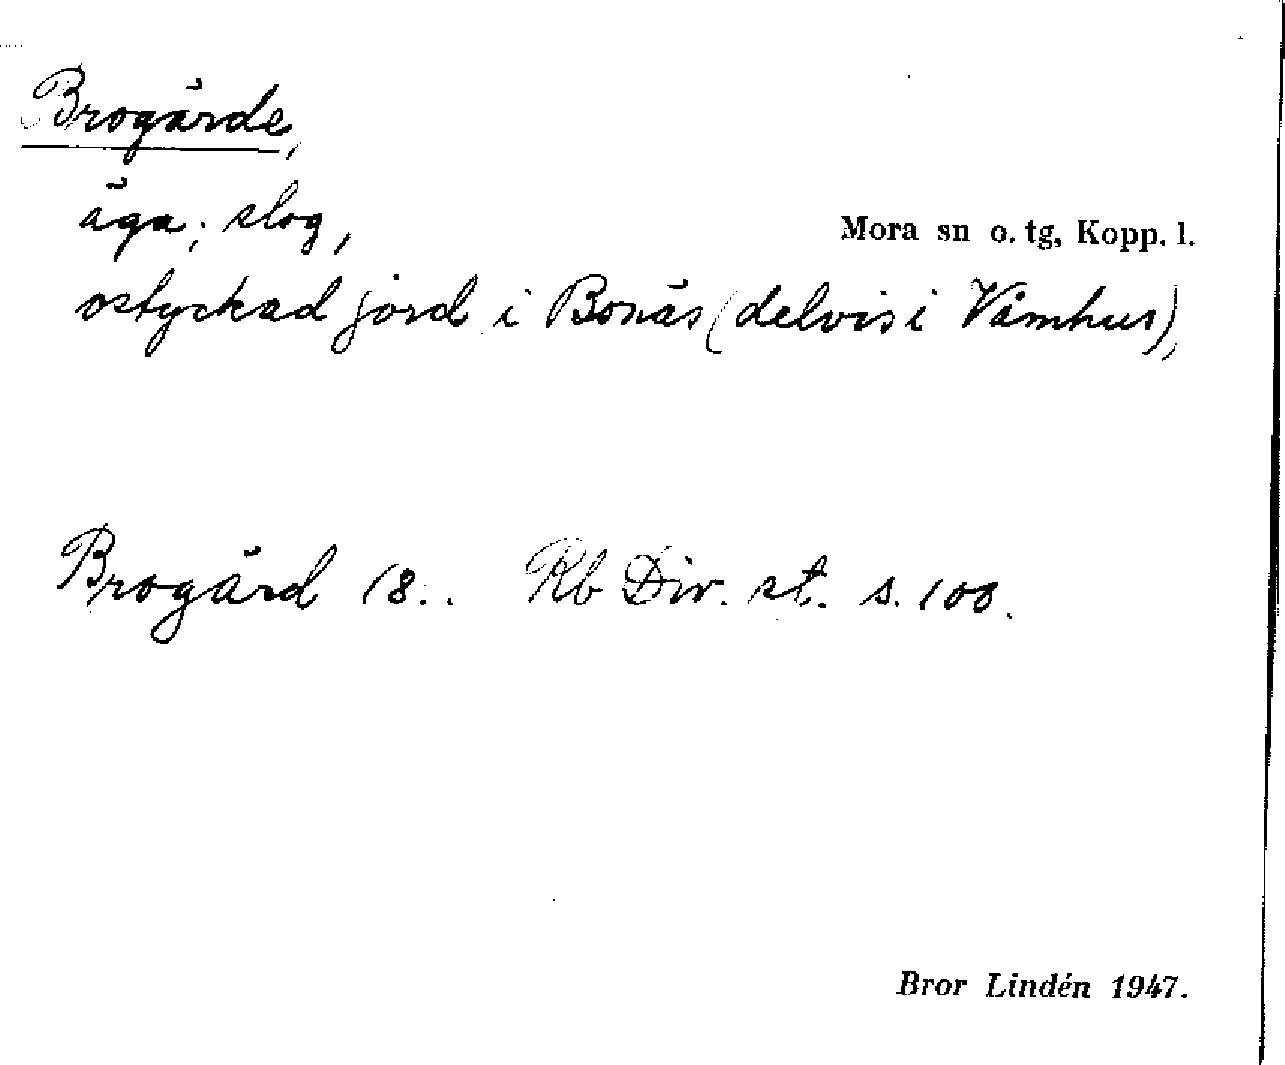 Brogärde,
äga; slog,
Mora sn o. tg, Kopp. l.
ostyckad jord i Bonäs (delvis i Våmhus),
Brogärd 18.. Rb Div. st. s. 100.
Bror Lindén 1947.